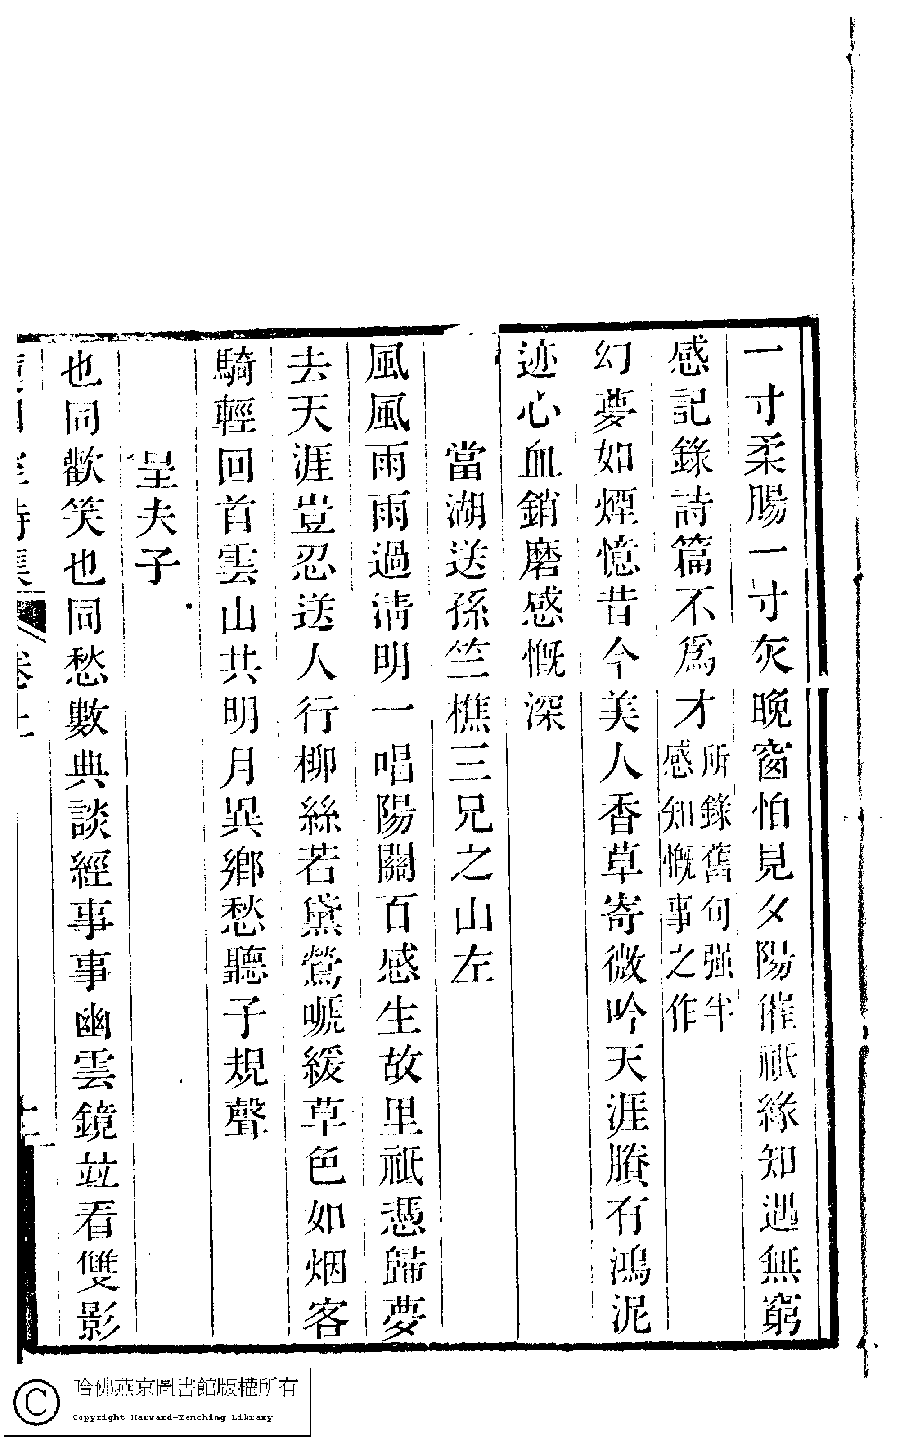 一寸柔腸一寸灰晚窗怕見夕陽催祇緣知遇無窮
感記錄詩篇不為才所錄舊句强半感知慨事之作
幻夢如煙憶昔今美人香草寄微吟天涯賸有鴻泥
迹心血銷磨感慨深
當湖送孫竺樵三兄之山左
風風雨雨過清明一唱陽關百感生故里祇憑歸夢
去天涯豈忍送人行柳絲若黛鶯嗁緩草色如烟客
騎輕回首雲山共明月異鄉愁聽子規聲
呈夫子
也同歡笑也同愁數典談經事事幽雲鏡竝看雙影
詩集
卷上
哈佛燕京圖書館版權所有
Copyright Harvard-Yenching Library